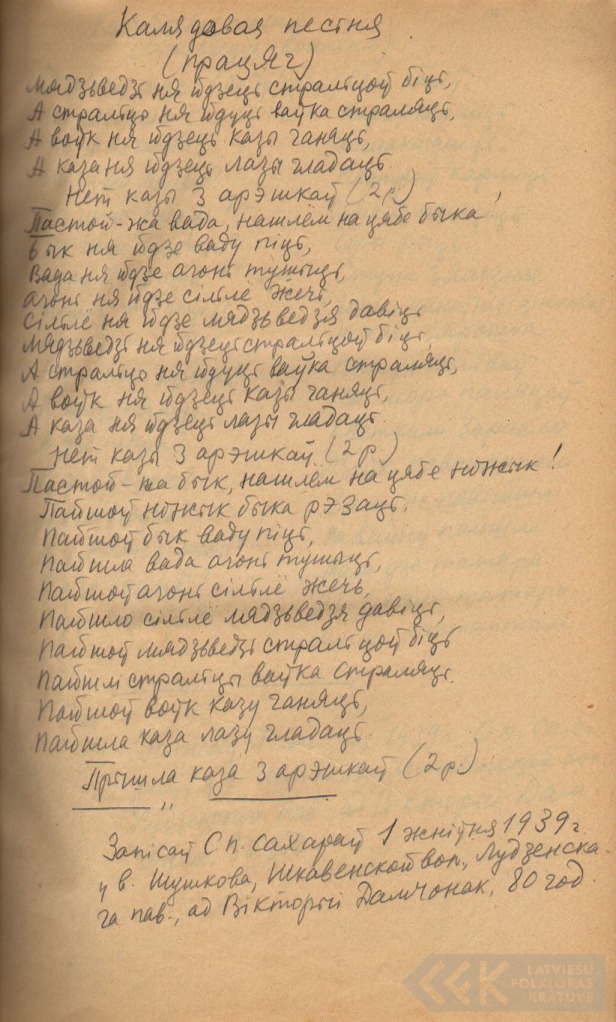 Калядовая пестня
(працяг)
Мядзьведзі ня йдзець стральцоў біць,
А стральцо ня йдуць ваўка страляць,
А воўк ня йдзець казы ганяць,
А каза ня йдзець лазы гладаць
Нет казы з арэшкаў (2 р.)
Пастой-жа вада, нашлём на цябе быка!
Бык ня йдзе ваду піць,
Вада ня йдзе агонь тушыць,
агонь ня йдзе сільлё жечь,
Сільлё ня йдзе мядзьведзя давіць
Мядзьведзь ня йдзець стральцоў біць,
А стральцо ня йдуць ваўка страляць,
А воўк ня йдзець казы ганяць,
А каза ня йдзець лазы гладаць
Нет казы з арэшкаў (2 р.)
Пастой-жа бык, нашлём на цябе ножык!
Пайшоў ножык быка рэзаць.
Пайшоў бык ваду піць,
Пайшла вада агонь тушыць,
Пайшоў агонь сільлё жечь,
Пайшло сільлё мядзьведзя давіць,
Пайшоў мядзьведзь стральцоў біць
Пайшлі стральцы ваўка страляць.
Пайшоў воўк казу ганяць,
Пайшла каза лазу гладаць.
Прышла каза з арэшкаў (2 р.)
Запісаў С п. Сахараў 1 жніўня 1939 г.
у в. Шушкова, Шкавенской вол., Лудзенска-
га пав., ад Вікторыі Дамчонак, 80 год.
LATVIEŠU
FOLKLORAS
KRĀTUVE